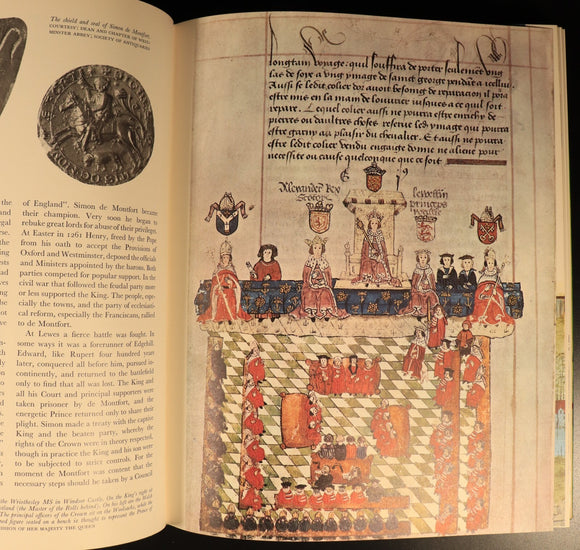 The shield and seal of Simon de Montfort.
COURTESY: DEAN AND CHAPTER OF WEST-
MINSTER ABBEY; SOCIETY OF ANTIQUARIES
of England". Simon de Montfort became
their champion. Very soon he began to
rebuke great lords for abuse of their privileges.
At Easter in 1261 Henry, freed by the Pope
from his oath to accept the Provisions of
Oxford and Westminster, deposed the officials
and Ministers appointed by the barons. Both
parties competed for popular support. In the
civil war that followed the feudal party more
or less supported the King. The people, es-
pecially the towns, and the party of ecclesiasti-
cal reform, especially the Franciscans, rallied
to de Montfort.
At Lewes a fierce battle was fought. In
some ways it was a forerunner of Edgehill.
Edward, like Rupert four hundred years
later, conquered all before him, pursued in-
continently, and returned to the battlefield
only to find that all was lost. The King and
all his Court and principal supporters were
taken prisoner by de Montfort, and the
energetic Prince returned only to share their
plight. Simon made a treaty with the captive
King and the beaten party, whereby the
rights of the Crown were in theory respected,
though in practice the King and his son were
to be subjected to strict controls. For the
moment de Montfort was content that the
necessary steps should be taken by a Council
the Wriothesley MS in Windsor Castle. On the King's right at
(the Master of the Rolls behind); on his left the Welsh
The principal officers of the Crown sit on the Woolsacks, while the
figure seated on a bench is thought to represent the Prior of
OF HER MAJESTY THE QUEEN
longtam voyage: quil souffira de porter seulement ung
las de soye a ung ymage de sainct george pendant a icellui
Aussi se ledit colier doit besoing de reparacion il pora
estre mis en la main de louvrier jusques a ce quil soit
repare. Lequel colier aussi ne pourra estre enrichy de
pierres ou daultres choses reserve ledit ymage qui pourra
estre garny au plaisir du chevalier. Et aussi ne pourra
estre ledit colier vendu engaige donne ne aliene pour
necessite ou cause quelconque que ce soit
Alexander Rex
Scotorum